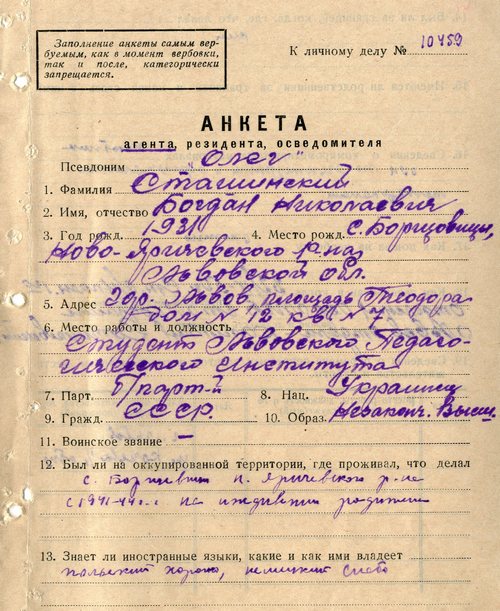 Заполнение анкеты самым вер-
буемым, как в момент вербовки,
так и после, категорически
запрещается.
К личному делу № 10459
АНКЕТА
агента, резидента, осведомителя
Псевдоним „Олег"
1. Фамилия Сташинский
2. Имя, отчество Богдан Николаевич
3. Год рожд. 1931 4. Место рожд. с. Борщовицы,
Ново-Яричевского р-на
Львовской обл.
5. Адрес гор. Львов, площадь Теодора
дом № 12 кв. № 7
6. Место работы и должность
Студент Львовского Педаго-
гического института
7. Парт. б/парт-й 8. Нац. Украинец
9. Гражд. СССР. 10. Образ. Незаконч. Высш.
11. Воинское звание –
12. Был ли на оккупированной территории, где проживал, что делал
с. Н. Яричевского р-на
с 1941-44 на иждивении родителей
13. Знает ли иностранные языки, какие и как ими владеет
польский хорошо, немецкий слабо